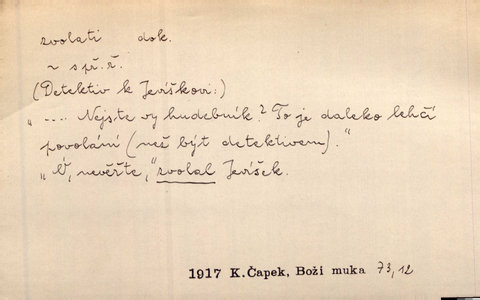 zvolati dok.
~ s př. ř.
(Detektiv k Jevíškovi:)
".... Nejste vy hudebník? To je daleko lehčí
povolání (než být detektivem)."
"Ó, nevěřte," zvolal Jevíšek.
1917 K. Čapek, Boží muka 73,12